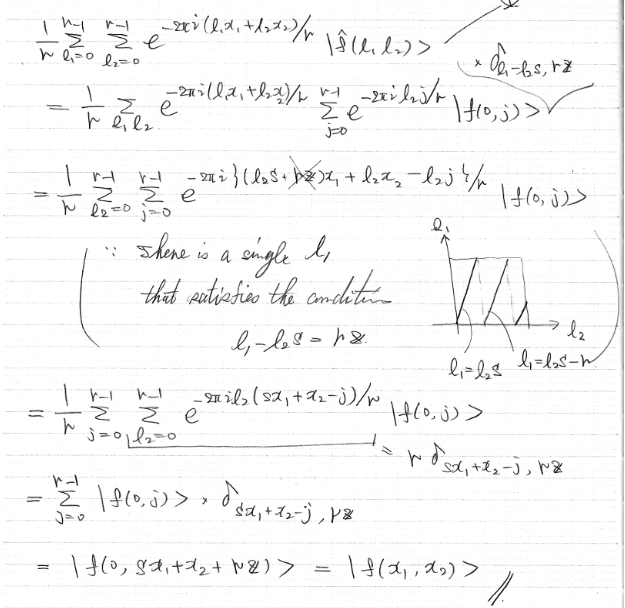 1/r Σ_{l₁=0}^{r-1} Σ_{l₂=0}^{r-1} e^{-2πi(l₁x₁+l₂x₂)/r} |f̂(l₁ l₂)>
× δ_{l₁-l₂s, rz}
= 1/r Σ_{l₁ l₂} e^{-2πi(l₁x₁+l₂x₂)/r} Σ_{j=0}^{r-1} e^{-2πi l₂j/r} |f(0,j)>
= 1/r Σ_{l₂=0}^{r-1} Σ_{j=0}^{r-1} e^{-2πi{(l₂s+rz)x₁+l₂x₂-l₂j}/r} |f(0,j)>
∵ there is a single l₁
that satisfies the condition
l₁-l₂s = rz.
l₁
l₂
l₁=l₂s
l₁=l₂s-r
= 1/r Σ_{j=0}^{r-1} Σ_{l₂=0}^{r-1} e^{-2πil₂(sx₁+x₂-j)/r} |f(0,j)>
= r δ_{sx₁+x₂-j, rz}
= Σ_{j=0}^{r-1} |f(0,j)> × δ_{sx₁+x₂-j, rz}
= |f(0, sx₁+x₂+rz)> = |f(x₁,x₂)> //